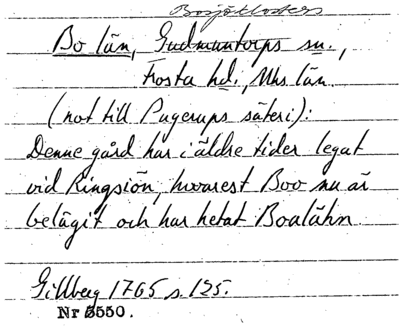 Bosjöklosters
Bo län, Gudmuntorps sn.,
Frosta hd., Mhs. län.
(not till Pugerups säteri):
Denne gård har i äldre tider legat
vid Ringsiön, hvarest Boo nu är
belägit och har hetat Boalähn.
Gillberg 1765 s. 125.
Nr 5550.